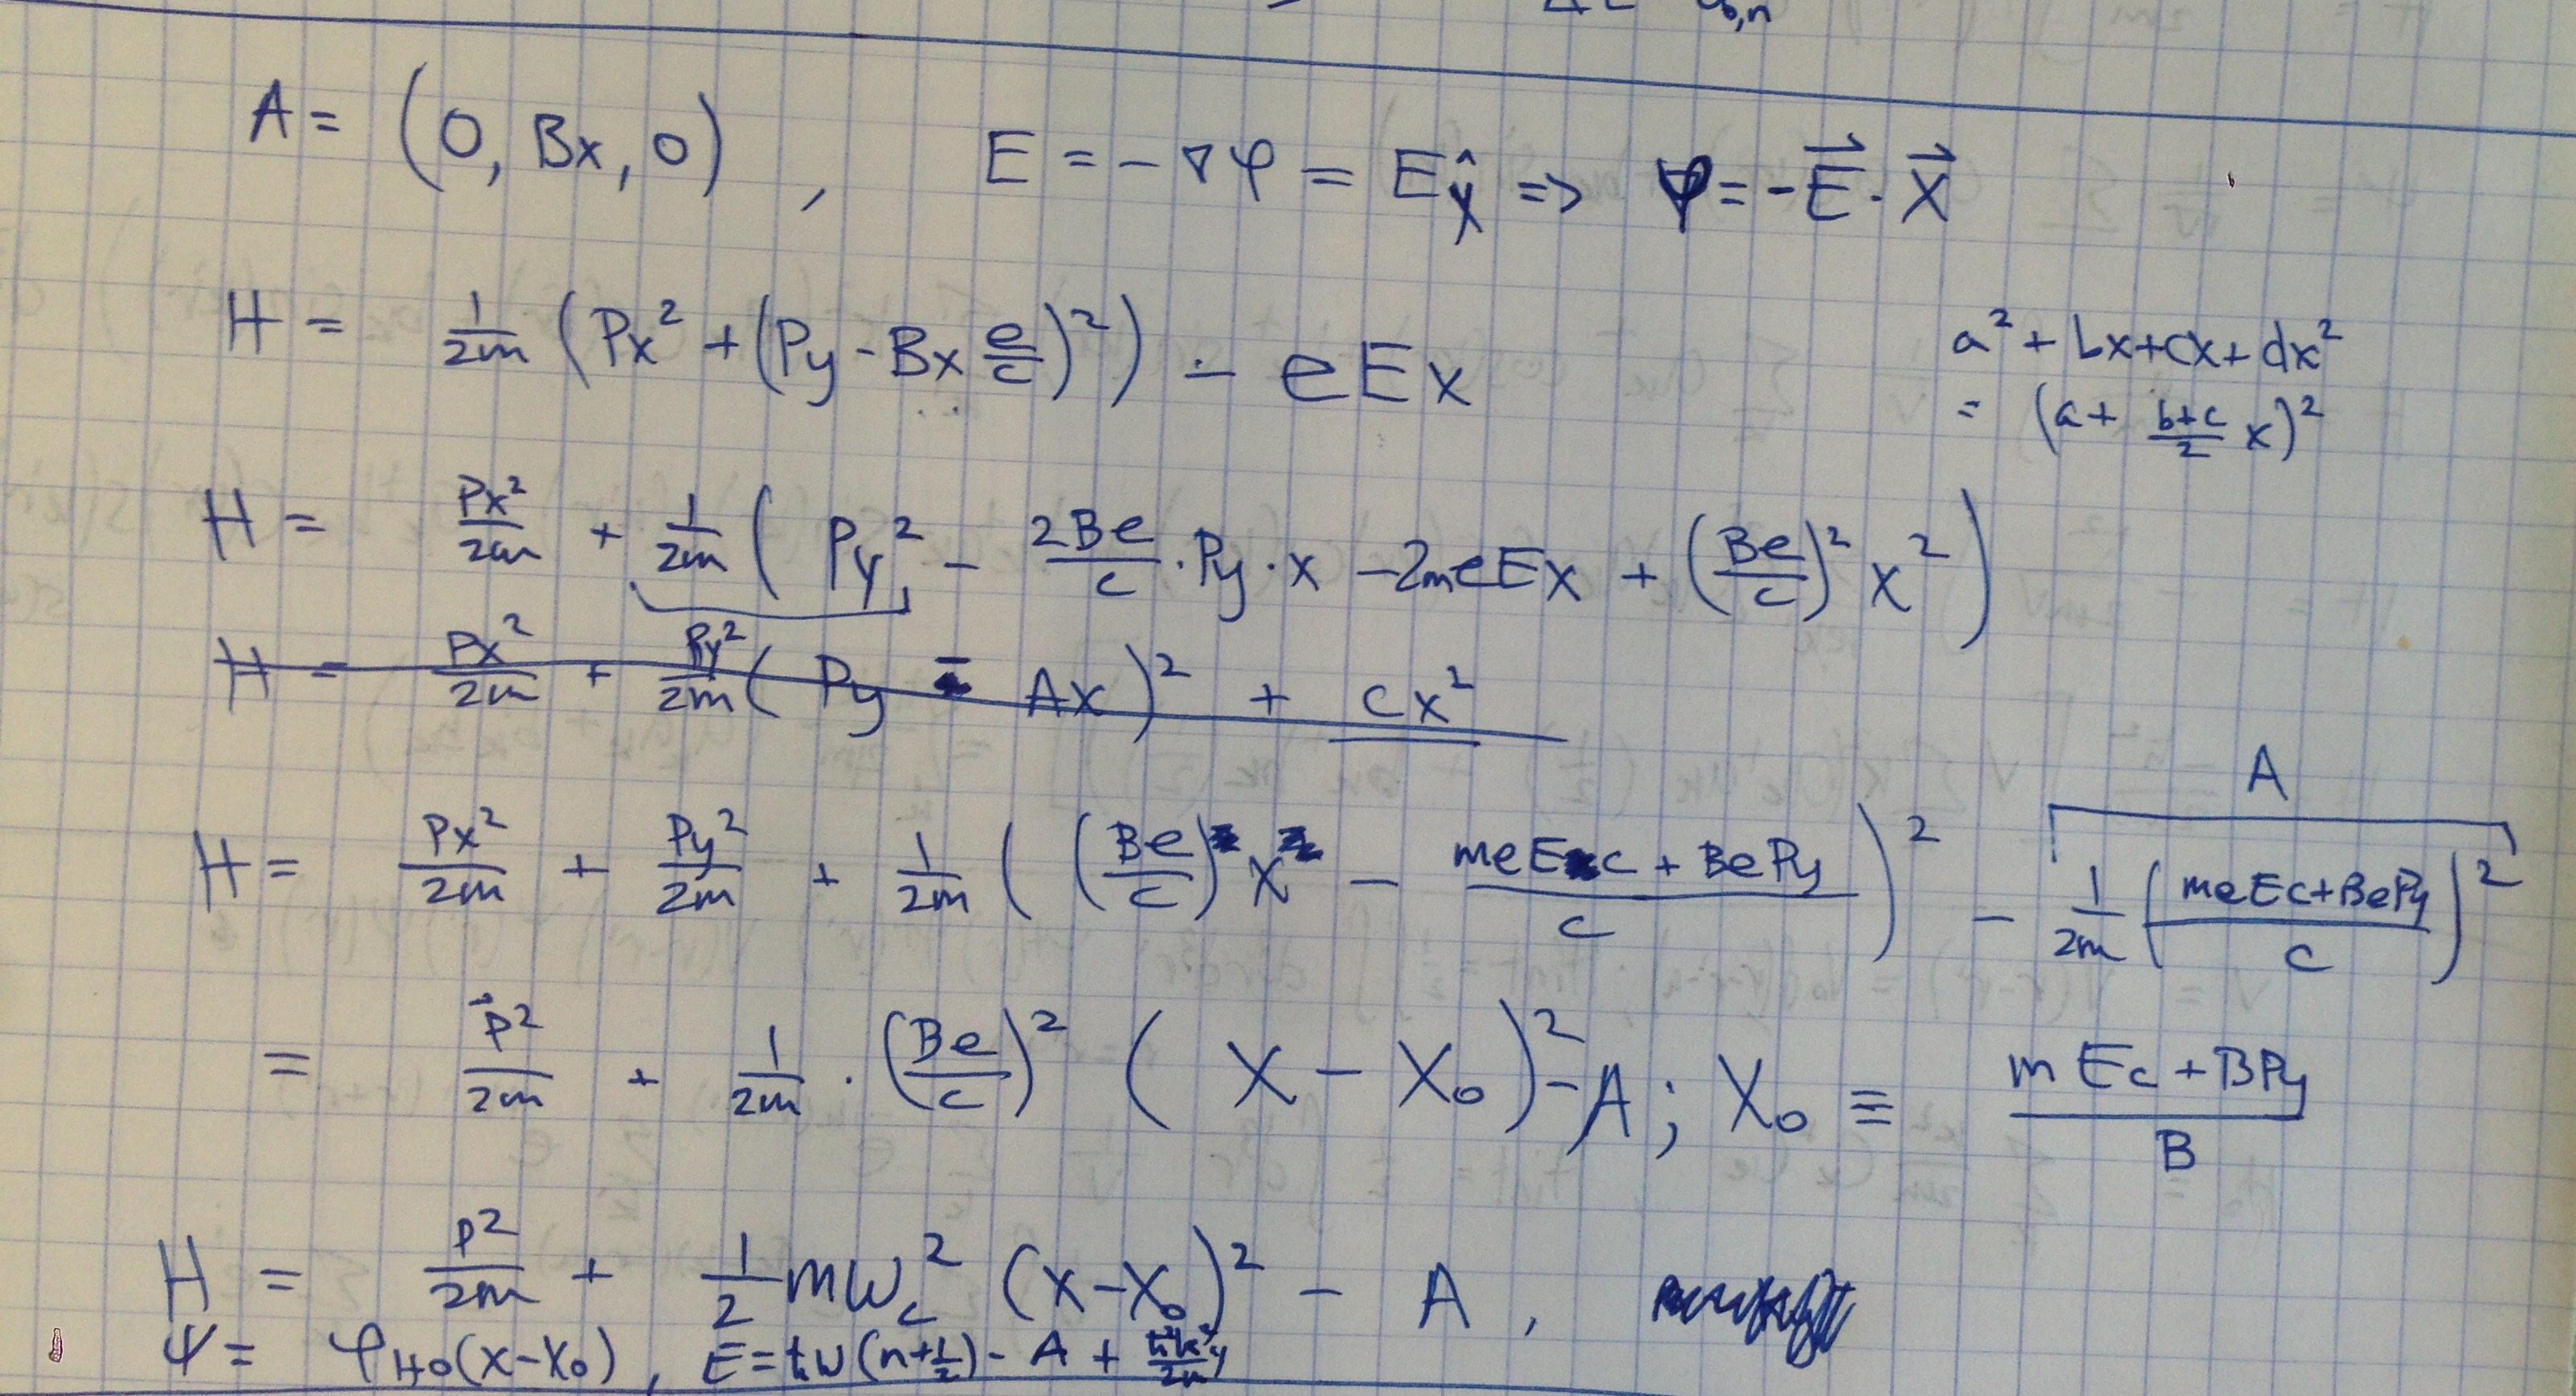 A = (0, Bx, 0) , E = -∇φ = Ex̂ => φ = -E⃗·X⃗
H = 1/2m (Px² + (Py - Bx e/c)²) - eEx
a² + bx + cx + dx²
= (a + b+c/2 x)²
H = Px²/2m + 1/2m (Py² - 2Be/c · Py · x - 2meEx + (Be/c)² x²)
H = Px²/2m + Py²/2m (Py - Ax)² + cx²
A
H = Px²/2m + Py²/2m + 1/2m ((Be/c) x - meEc + BePy/c)² - 1/2m (meEc+BePy/c)²
= p⃗²/2m + 1/2m · (Be/c)² (X - X₀)² - A ; X₀ ≡ mEc + BPy/B
H = p²/2m + 1/2 mωc² (x-x₀)² - A ,
ψ = φHO(x-x₀) , E = ħω(n+1/2) - A + ħ²k²y/2m